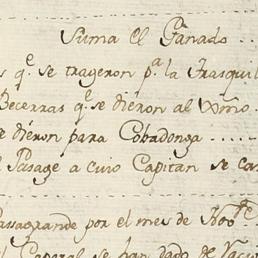 Suma El Ganado
s qe se trageron pa la Frasquil
Becerras qe se dieron al Xmo
e dieron para Cobadonga
l Pasage a cuio Capitan se ca
asagrande por el mes de
l Caporal se han dado de Vaci